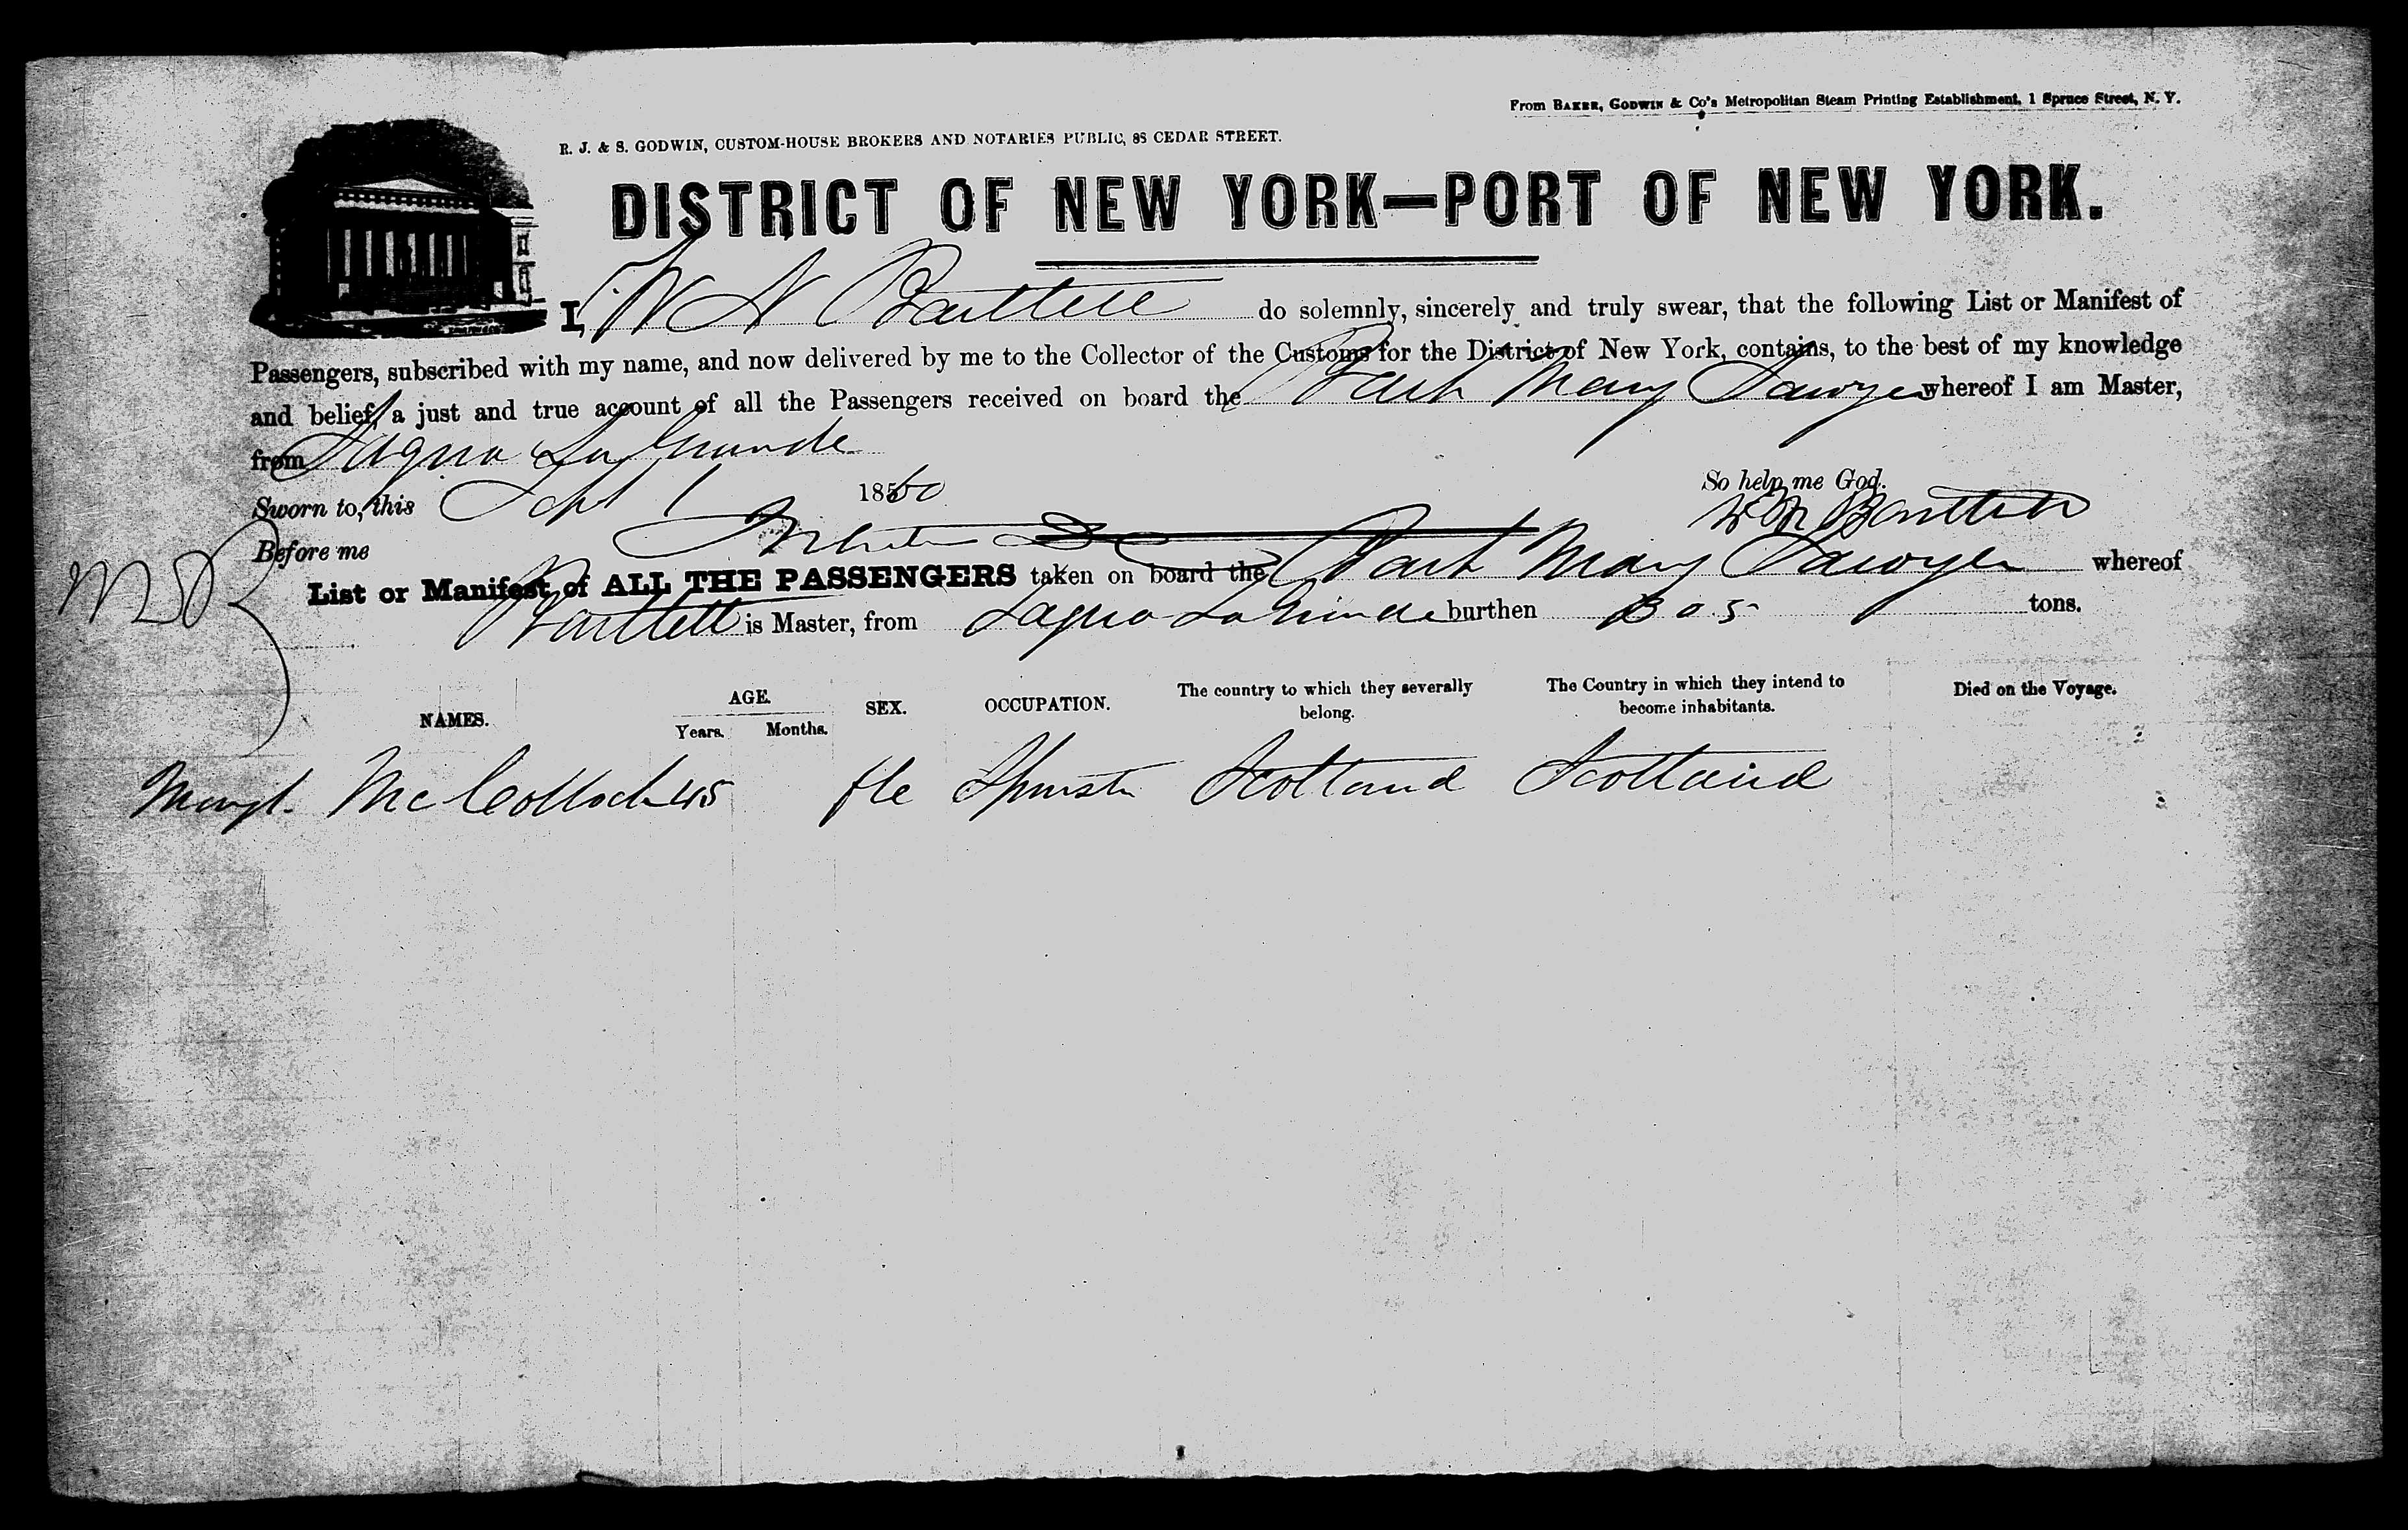 From BAKER, GODWIN & Co's Metropolitan Steam Printing Establishment, 1 Spruce Street, N. Y.
R. J. & S. GODWIN, CUSTOM-HOUSE BROKERS AND NOTARIES PUBLIC, 88 CEDAR STREET.
DISTRICT OF NEW YORK—PORT OF NEW YORK.
I, W N Bartlett do solemnly, sincerely and truly swear, that the following List or Manifest of
Passengers, subscribed with my name, and now delivered by me to the Collector of the Customs for the District of New York, contains, to the best of my knowledge
and belief, a just and true account of all the Passengers received on board the Bark Mary Sawyer whereof I am Master,
from Sagua La Grande
Sworn to, this Sept 1 1860 So help me God.
Before me W N Bartlett
List or Manifest of ALL THE PASSENGERS taken on board the Bark Mary Sawyer whereof
Bartlett is Master, from Sagua La Grande burthen 305 tons.
NAMES. AGE. Years. Months. SEX. OCCUPATION. The country to which they severally belong. The Country in which they intend to become inhabitants. Died on the Voyage.
Margt. McCulloch 45 fle Spinster Scotland Scotland